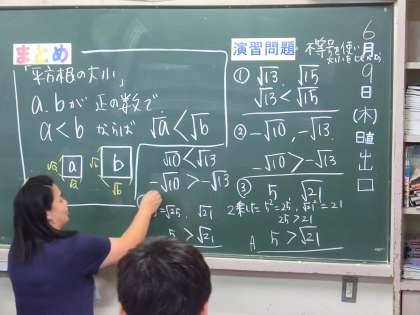 まとめ
「平方根の大小」
a.bが正の数で、
a<b ならば √a<√b
√a
a
√a
√b
b
√b
√10<√13
-√10>-√13
=√25, √21
5>√21
演習問題
不等号を使い
① √13, √15
√13<√15
② -√10, -√13.
-√10>-√13
③ 5 √21
5²=25, √21²=21
25>21
A 5>√21
6月9日(木)
日直
出口